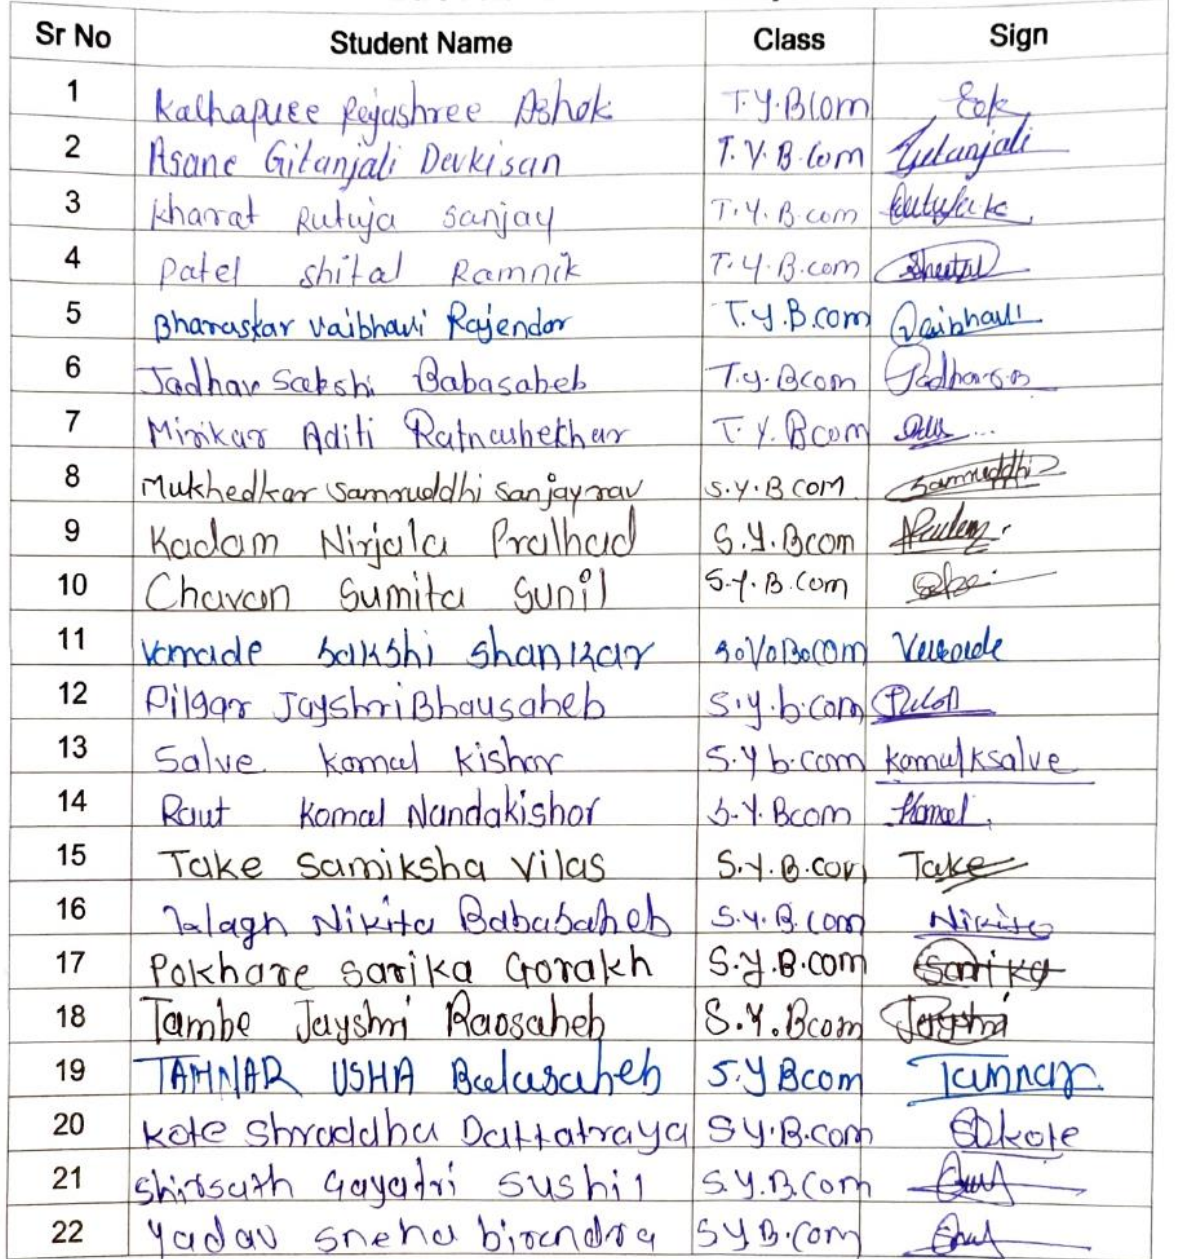 Sr No Student Name Class Sign
1 Kalhapuee Rejashree Ashok T.Y.Bcom
2 Asane Gitanjali Devkisan T.Y.B.com Gitanjali
3 kharat Rutuja sanjay T.Y.B.com
4 patel shital Ramnik T.Y.B.com
5 Bharaskar vaibhavi Rajendar T.Y.B.com Vaibhavi
6 Jadhav Sakshi Babasaheb T.y.Bcom
7 Mirikar Aditi Ratnashekhar T.Y.Bcom
8 Mukhedkar samruddhi sanjayrav S.Y.B com samruddhi
9 Kadam Nirjala Pralhad S.Y.Bcom
10 Chavan Sumita Sunil S.Y.B.Com
11 sakshi shankar
12 Pilgar Jayshri Bhausaheb S.y.b.com
13 Salve komal kishor S.Y b.com komalksalve
14 Raut Komal Nandakishor S.Y.Bcom Komal
15 Take Samiksha Vilas S.Y.B.com Take
16 Nikita Babasaheb S.Y.B.com Nikita
17 Pokhare Sarika Gorakh S.Y.B.com Sarika
18 Tambe Jayshri Raosaheb S.Y.Bcom Jayshri
19 TAMNAR USHA Balasaheb S.Y Bcom Tamnar
20 kote Shraddha Dattatraya SY.B.com SDkote
21 Shirsath Gayatri Sushil S.Y.B.Com
22 Yadav sneha birendra SYB.Com